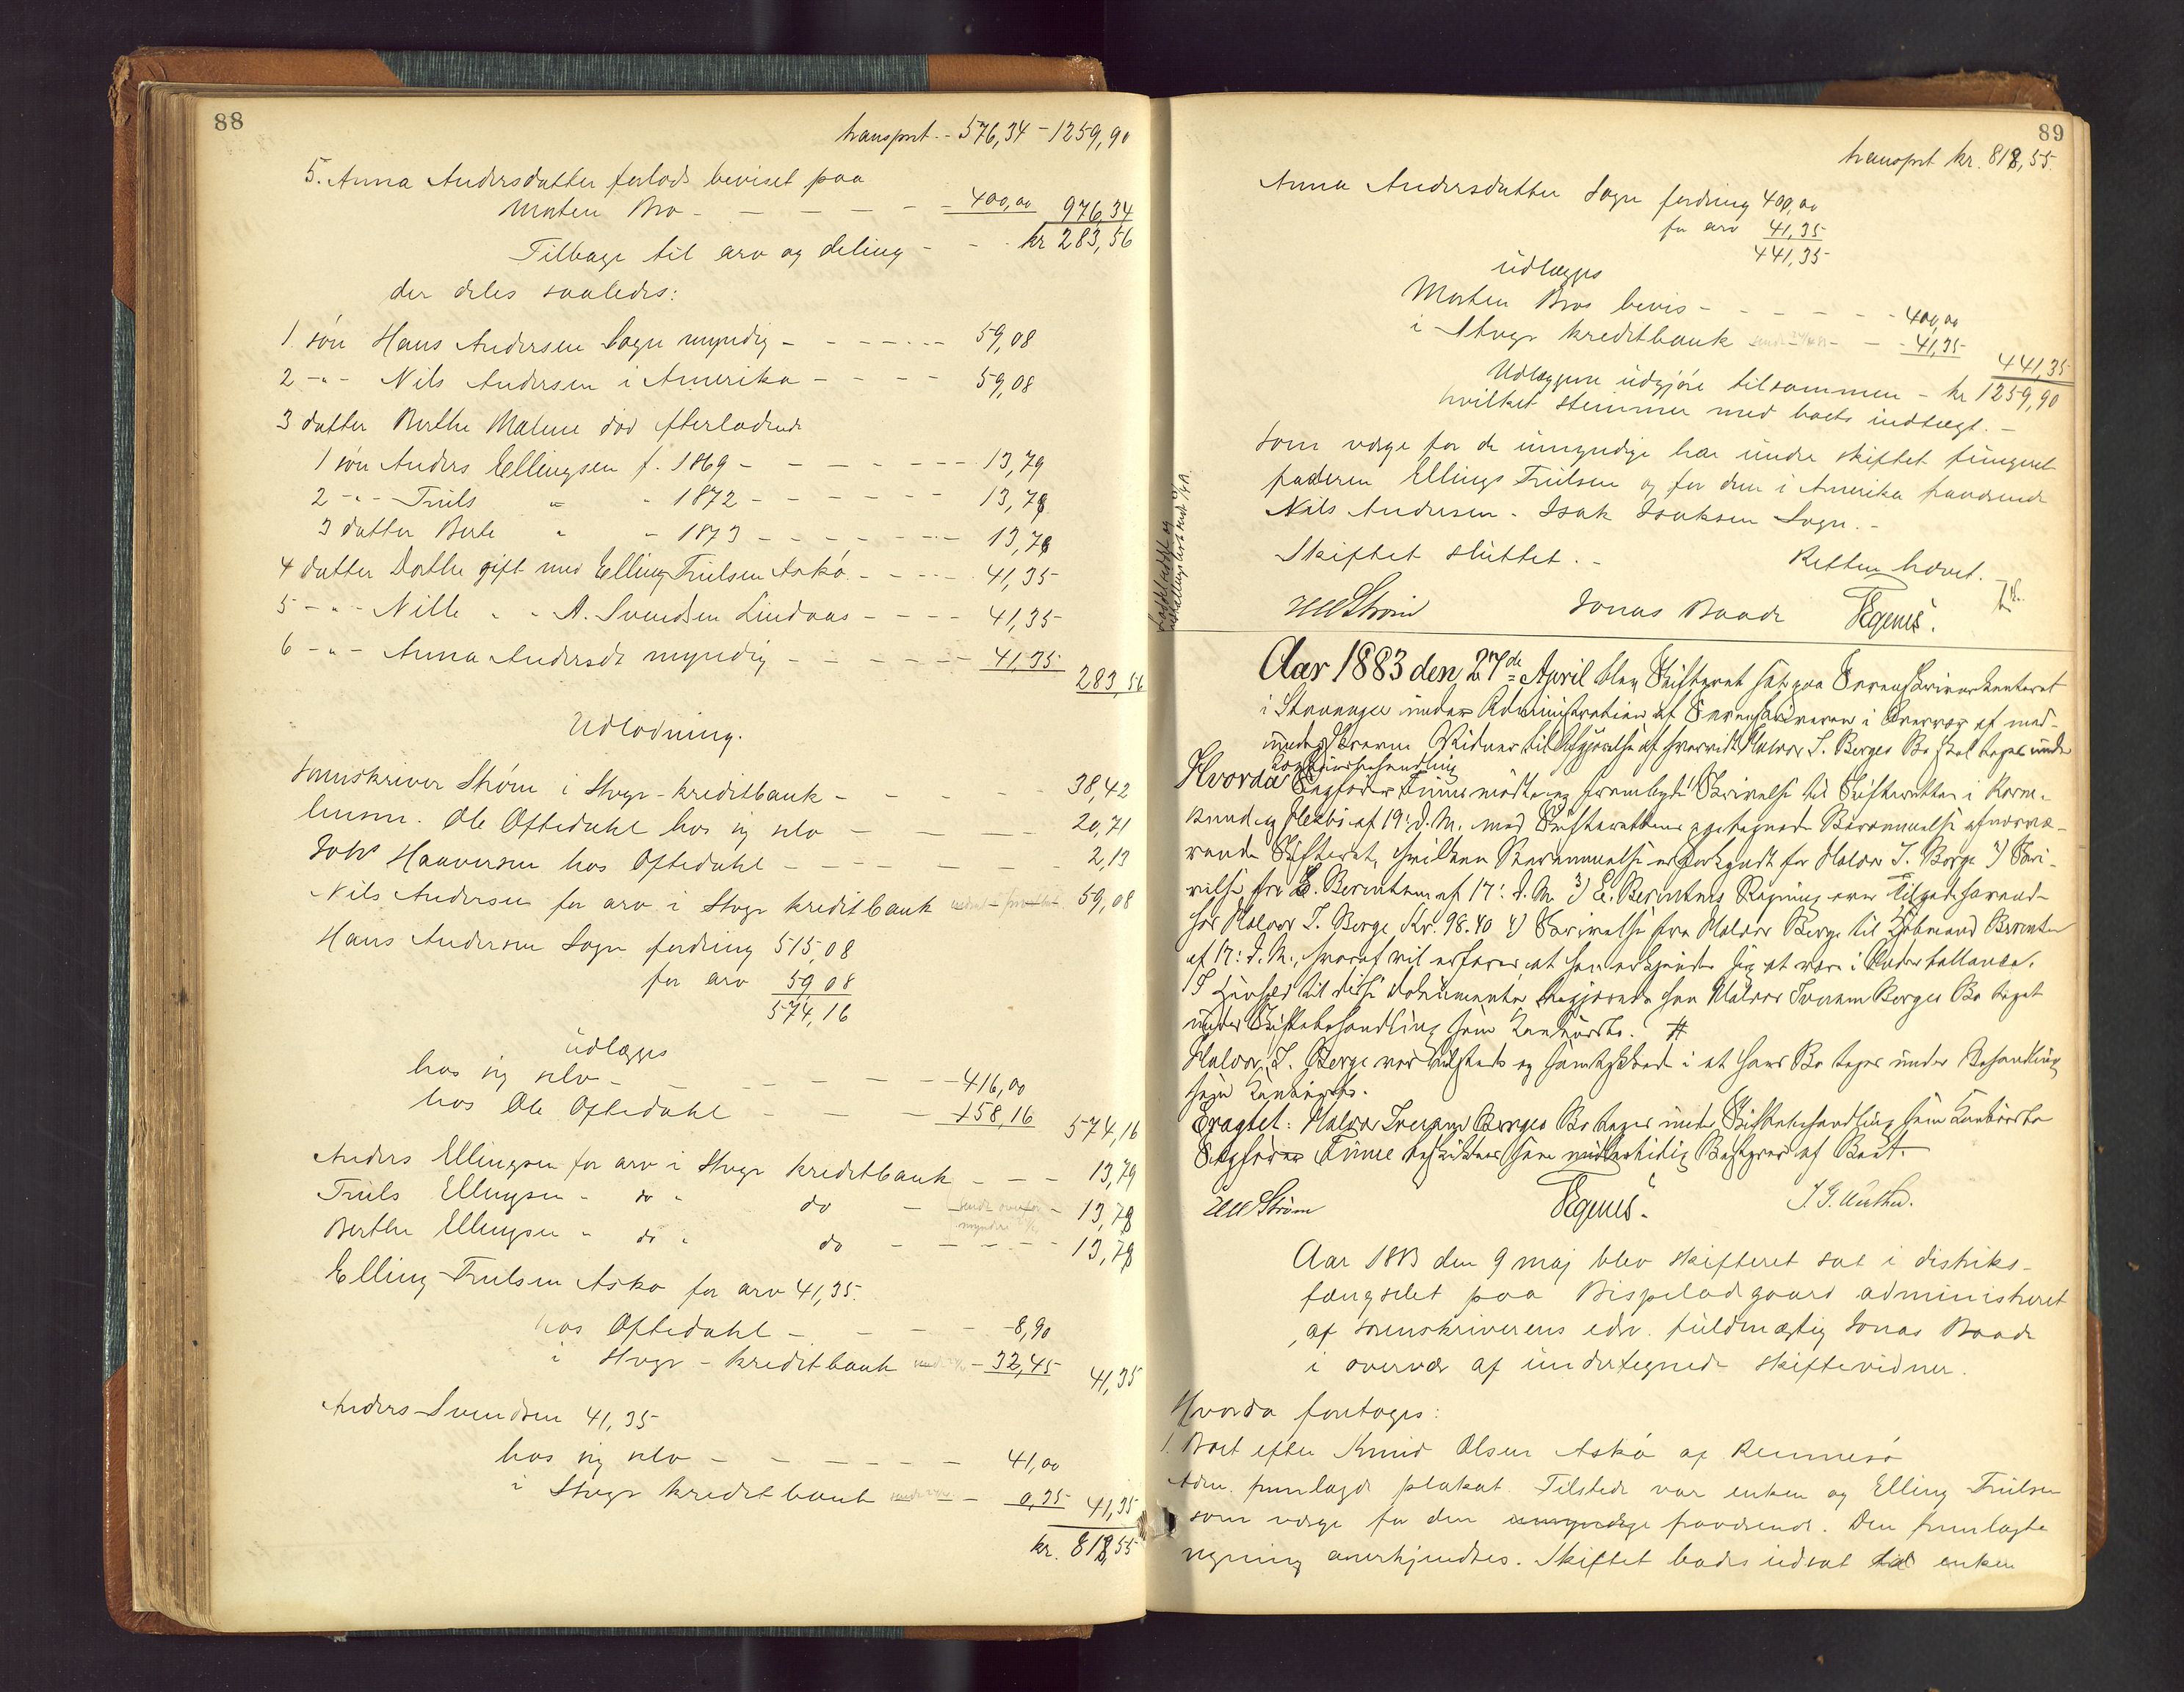 88
transport - 576,34 - 1259,90
5. Anna Andersdatter forlods beviset paa
Morten Bro - - - - - 400,00 976,34
Tilbage til arv og deling - - kr 283,56
der deles saaledes:
1 søn Hans Andersen Sogn myndig - - - - - 59,08
2 -"- Nils Andersen i Amerika - - - - 59,08
3 datter Berthe Malene død efterladende
1 søn Anders Ellingsen f. 1869 - - - - - 13,79
2 -"- Truls " - 1872 - - - - - 13,78
3 datter Berte " - 1873 - - - - - 13,78
4 datter Dorthe gift med Elling Trulsen Askø - - - - 41,35
5 -"- Nille " " A. Svendsen Lindaas - - - - 41,35
6 -"- Anna Andersdt myndig - - - - - 41,35
283,56
Udlodning.
Sorenskriver Strøm i Stvgr-kreditbank - - - - - 38,42
lensm. Ole Oftedahl hos sig selv - - - - 20,71
Haaversen hos Oftedahl - - - - - 2,13
Nils Andersen for arv i Stvgr kreditbank 59,08
Hans Andersen Sogn fordring 515,08
for arv 59,08
574,16
udlægges
hos sig selv - - - - - - 416,00
hos Ole Oftedahl - - - 158,16
574,16
Anders Ellingsen for arv i Stvgr kreditbank - - - 13,79
Truls Ellingsen - do - do - 13,78
Berthe Ellingsen - do - do - - - - 13,78
Elling Trulsen Askø for arv 41,35.
hos Oftedahl - - - - 8,90
i Stvgr-kreditbank - 32,45
41,35
Anders Svendsen 41,35
hos sig selv - - - - - - 41,00
i Stvgr kreditbank - 0,35 41,35
kr. 818,55
89
transport kr. 818,55.
Anna Andersdatter Sogn fordring 400,00
for arv 41,35
441,35
udlægges
Morten Bros bevis - - - - - - 400,00
i Stvgr kreditbank - - 41,35
441,35
Udlæggene udgjøre tilsammen - kr 1259,90
hvilket stemmer med boets indtægt. -
Som værge for de umyndige har under skiftet fungeret
faderen Ellings Trulsen og for den i Amerika fraværende
Nils Andersen - Isak Isaksen Sogn. -
Skiftet sluttet. - Retten hævet.
Strøm Jonas Baade Tegnes.
Aar 1883 den 27de April blev Skifteret sat paa Sorenskriverkontoret
i Stavanger under Administration af Sorenskriveren i Overvær af med-
underskrevne Vidner til Afgjørelse af hvorvidt Halvor T. Berges Bo skal tages under
Konkursbehandling
Hvorda Sagfører Finne mødte og frembyde Skrivelse til Skifteretten i Karm-
sund og Hesbø af 19. d. M. med Skifterettens paategnede Berammelse af nærvæ-
rende Skifteret, hvilken Berammelse er forkyndt for Halvor T. Berge 2) Skri-
velse fra E. Berentsen af 17. d. M. 3) E. Berentsens Regning over Tilgodehavende
hos Halvor T. Berge, Kr. 98.40 4) Skrivelse fra Halvor Berge til Kjøbmand Berentsen
af 17. d. M., hvoraf vil erfares, at han erkjender sig at være i Underballance.
I Henhold til disse Dokumenter begjærede han Halvor Berges Bo taget
under Skiftebehandling som Konkursbo. #
Halvor T. Berge var tilstede og samtykkede i at hans Bo tages under Behandling
som Konkursbo.
Eragtet: Halvor Berges Bo tages under Skiftebehandling som Konkursbo
Sagfører Finne beskikkes som midlertidig Bestyrer af Boet.
Strøm Tegnes.
Aar 1883 den 9 maj blev skifteret sat i distrikts-
fængselet paa Bispeladegaard administreret
af sorenskriverens edsv. fuldmægtig Jonas Baade
i overvær af undertegnede skiftevidner.
Hvorda foretoges:
1. Boet efter Knud Olsen Askø af Rennesø
Adm. fremlagde plakat. Tilstede var enken og Elling Trulsen
som værge for den umyndige fraværende. Den fremlagte
regning anerkjendtes. Skiftet bades udsat til enken